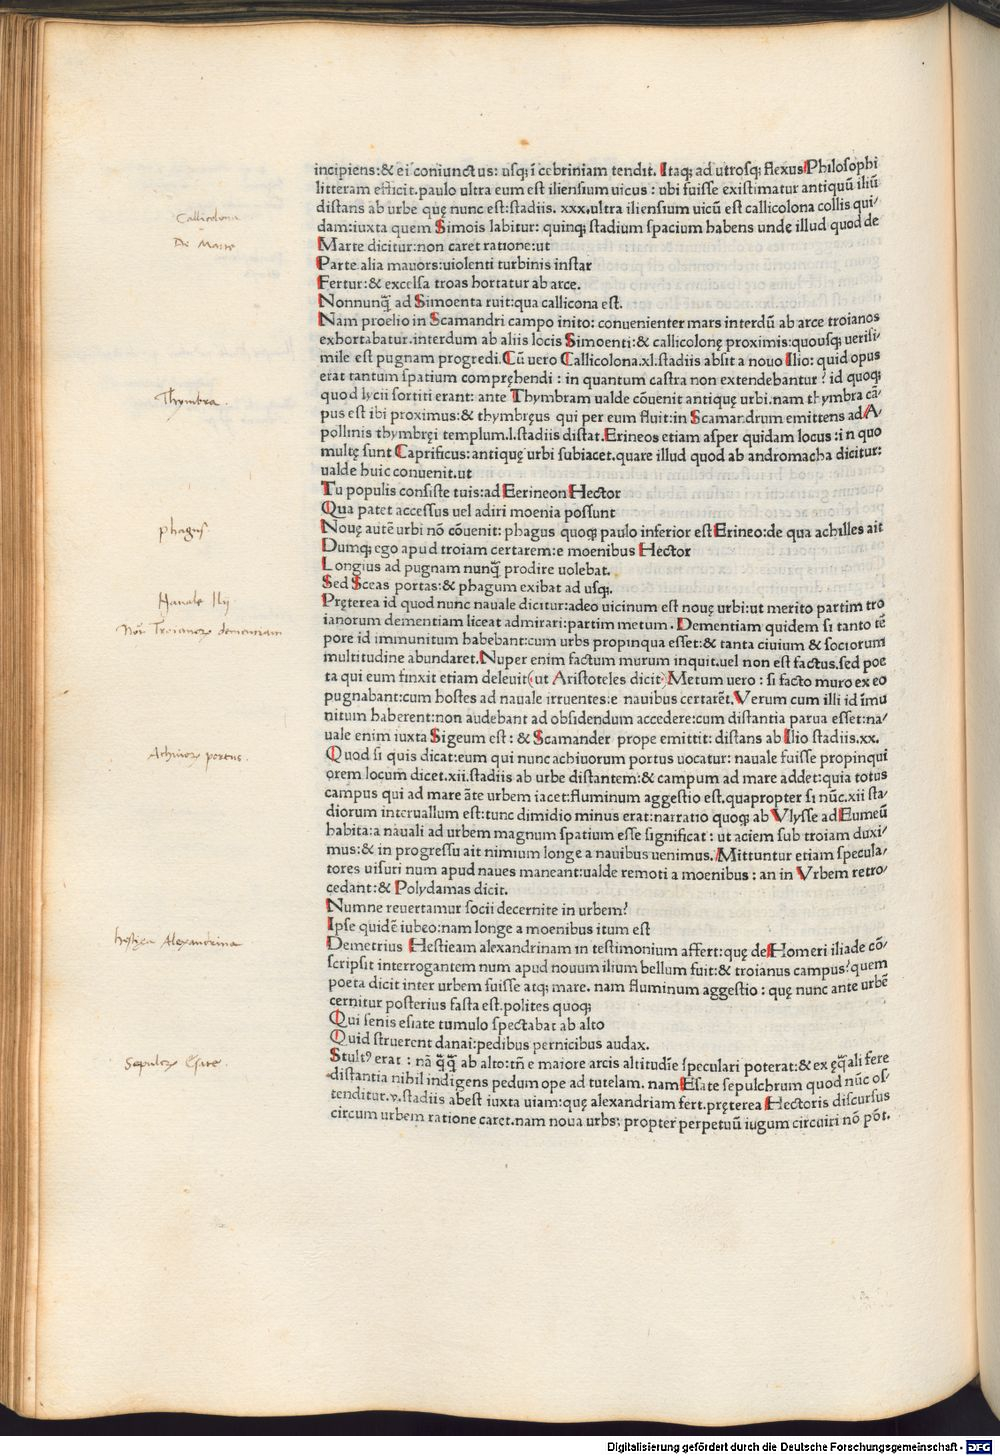 incipiens:& ei coniunctus: usq; ĩ cebriniam tendit. Itaq; ad utrosq; flexus Philosophi
litteram efficit.paulo ultra eum est iliensium uicus : ubi fuisse existimatur antiquũ iliũ
distans ab urbe quę nunc est:stadiis. xxx.ultra iliensium uicũ est callicolona collis qui/
dam:iuxta quem Simois labitur: quinq; stadium spacium habens unde illud quod de
Marte dicitur:non caret ratione:ut
Parte alia mauors:uiolenti turbinis instar
Fertur:& excelsa troas hortatur ab arce.
Nonnunq̃ ad Simoenta ruit:qua callicona est.
Nam proelio in Scamandri campo inito: conuenienter mars interdũ ab arce troianos
exhortabatur.interdum ab aliis locis Simoenti:& callicolonę proximis:quousq; uerisi/
mile est pugnam progredi.Cũ uero Callicolona.xl.stadiis absit a nouo Ilio: quid opus
erat tantum spatium compręhendi : in quantum castra non extendebantur? id quoq;
quod lycii sortiti erant: ante Thymbram ualde cõuenit antiquę urbi.nam thymbra cã/
pus est ibi proximus:& thymbręus qui per eum fluit:in Scamandrum emittens ad A/
pollinis thymbręi templum.l.stadiis distat.Erineos etiam asper quidam locus :in quo
multę sunt Caprificus:antiquę urbi subiacet.quare illud quod ab andromacha dicitur:
ualde huic conuenit.ut
Tu populis consiste tuis:ad Eerineon Hector
Qua patet accessus uel adiri moenia possunt
Nouę autẽ urbi nõ cõuenit: phagus quoq; paulo inferior est Erineo:de qua achilles ait
Dumq; ego apud troiam certarem:e moenibus Hector
Longius ad pugnam nunq̃ prodire uolebat.
Sed Sceas portas:& phagum exibat ad usq;.
Pręterea id quod nunc nauale dicitur:adeo uicinum est nouę urbi:ut merito partim tro
ianorum dementiam liceat admirari:partim metum. Dementiam quidem si tanto tẽ
pore id immunitum habebant:cum urbs propinqua esset:& tanta ciuium & sociorum
multitudine abundaret.Nuper enim factum murum inquit.uel non est factus.sed poe
ta qui eum finxit etiam deleuit(ut Aristoteles dicit) Metum uero : si facto muro ex eo
pugnabant:cum hostes ad nauale irruentes:e nauibus certarẽt.Verum cum illi id imu
nitum haberent:non audebant ad obsidendum accedere:cum distantia parua esset:na/
uale enim iuxta Sigeum est : & Scamander prope emittit: distans ab Ilio stadiis.xx.
Quod si quis dicat:eum qui nunc achiuorum portus uocatur: nauale fuisse propinqui
orem locum dicet.xii.stadiis ab urbe distantem:& campum ad mare addet:quia totus
campus qui ad mare ãte urbem iacet:fluminum aggestio est.quapropter si nũc.xii sta/
diorum interuallum est:tunc dimidio minus erat:narratio quoq; ab Vlysse ad Eumeũ
habita:a nauali ad urbem magnum spatium esse significat : ut aciem sub troiam duxi/
mus:& in progressu ait nimium longe a nauibus uenimus. Mittuntur etiam specula/
tores uisuri num apud naues maneant:ualde remoti a moenibus : an in Vrbem retro/
cedant:& Polydamas dicit.
Numne reuertamur socii decernite in urbem?
Ipse quidẽ iubeo:nam longe a moenibus itum est
Demetrius Hestieam alexandrinam in testimonium affert:quę de Homeri iliade cõ/
scripsit interrogantem num apud nouum ilium bellum fuit:& troianus campus?quem
poeta dicit inter urbem fuisse atq; mare. nam fluminum aggestio : quę nunc ante urbẽ
cernitur posterius fasta est.polites quoq;
Qui senis esiate tumulo spectabat ab alto
Quid struerent danai:pedibus pernicibus audax.
Stultꝰ erat : nã q̃q̃ ab alto:tñ e maiore arcis altitudĩe speculari poterat:& ex ęq̃ali fere
distantia nihil indigens pedum ope ad tutelam. nam Esate sepulchrum quod nũc os/
tenditur.v.stadiis abest iuxta uiam:quę alexandriam fert.pręterea Hectoris discursus
circum urbem ratione caret.nam noua urbs; propter perpetuũ iugum circuiri nõ põt.
Callicolona
De Marte
Thymbra.
phagus
Nauale Ilij
Troianorum dementiam
Achiuorum portus.
hestiea Alexandrina
Sepulcrum Esate.
Digitalisierung gefördert durch die Deutsche Forschungsgemeinschaft - DFG